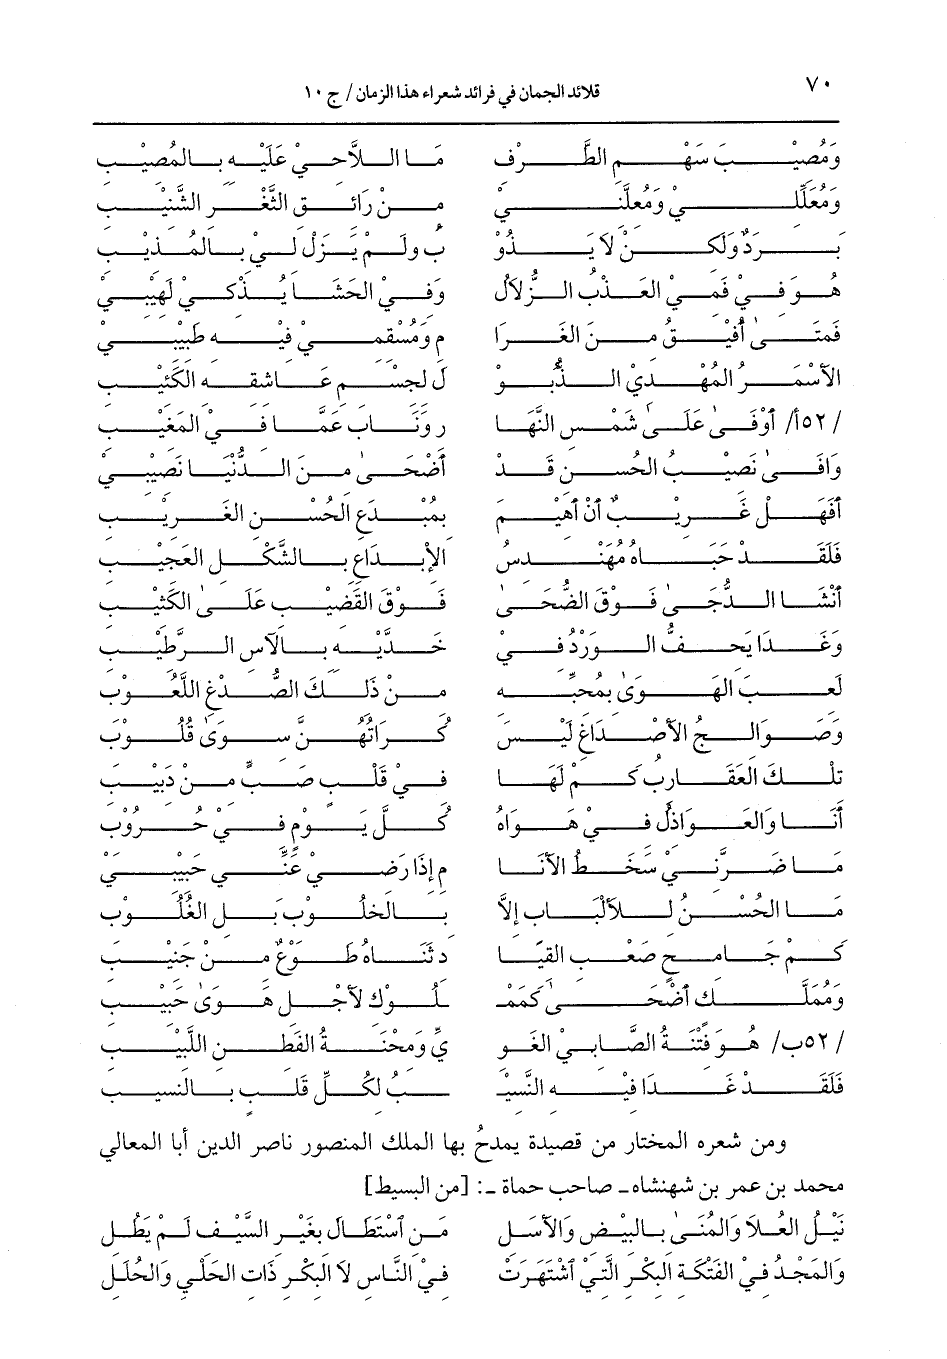 ٧٠
قلائد الجمان في فرائد شعراء هذا الزمان / ج ١٠
وَمُصِيْبِ سَهْمِ الطَّرْفِ مَا اللاَّحِيْ عَلَيْهِ بِالمُصِيْبِ
وَمُعَلِّلِيْ وَمُعِلَّنِيْ مِنْ رَائِقِ الثَّغْرِ الشَّنِيْبِ
بَرَدٌ وَلَكِنْ لاَ يَذُوْ بُ وَلَمْ يَزَلْ لِيْ بِالمُذِيْبِ
هُوَ فِيْ فَمِيْ العَذْبُ الزُّلاَلُ وَفِيْ الحَشَا يُذْكِيْ لَهِيْبِيْ
فَمَتَىٰ أُفِيْقُ مِنَ الغَرَا مِ وَمُسْقِمِيْ فِيْهِ طَبِيْبِيْ
الأَسْمَرُ المُهْدِيْ الذُّبُوْ لَ لِجِسْمِ عَاشِقِهِ الكَئِيْبِ
/٥٢أ/ أَوْفَىٰ عَلَىٰ شَمْسِ النَّهَا رِ وَنَابَ عَمَّا فِيْ المَغِيْبِ
وَافَىٰ نَصِيْبُ الحُسْنِ قَدْ أَضْحَىٰ مِنَ الدُّنْيَا نَصِيْبِيْ
أَفَهَلْ غَرِيْبٌ أَنْ أَهِيْمَ بِمُبْدَعِ الحُسْنِ الغَرِيْبِ
فَلَقَدْ حَبَاهُ مُهَنْدِسُ الإِبْدَاعِ بِالشَّكْلِ العَجِيْبِ
أَنْشَا الدُّجَىٰ فَوْقَ الضُّحَىٰ فَوْقَ القَضِيْبِ عَلَىٰ الكَثِيْبِ
وَغَدَا يَحِفُّ الوَرْدُ فِيْ خَدَّيْهِ بِالآسِ الرَّطِيْبِ
لَعِبَ الهَوَىٰ بِمُحِبِّهِ مِنْ ذَلِكَ الصُّدْغِ اللَّعُوْبِ
وَصَوَالِجُ الأَصْدَاغِ لَيْسَ كُرَاتُهُنَّ سِوَىٰ قُلُوْبِ
تِلْكَ العَقَارِبُ كَمْ لَهَا فِيْ قَلْبِ صَبٍّ مِنْ دَبِيْبِ
أَنَا وَالعَوَاذِلُ فِيْ هَوَاهُ كُلَّ يَوْمٍ فِيْ حُرُوْبِ
مَا ضَرَّنِيْ سَخَطُ الأَنَا مِ إِذَا رَضِيْ عَنِّيْ حَبِيْبِيْ
مَا الحُسْنُ لِلأَلْبَابِ إِلاَّ بِالخَلُوْبِ بَلِ الغُلُوْبِ
كَمْ جَامِحٍ صَعْبِ القِيَا دِ ثَنَاهُ طَوْعٌ مِنْ جَنِيْبِ
وَمُمَلَّكٍ أَضْحَىٰ كَمَمْـ لُوْكٍ لأَجْلِ هَوَىٰ حَبِيْبِ
/٥٢ب/ هُوَ فِتْنَةُ الصَّابِيْ الغَوِ يِّ وَمِحْنَةُ الفَطِنِ اللَّبِيْبِ
فَلَقَدْ غَدَا فِيْهِ النَّسِيْـ ـبُ لِكُلِّ قَلْبٍ بِالنسيبِ
ومن شعره المختار من قصيدة يمدحُ بها الملك المنصور ناصر الدين أبا المعالي
محمد بن عمر بن شهنشاه ـ صاحب حماة ـ : [من البسيط]
نَيْلُ العُلاَ وَالمُنَىٰ بِالبِيْضِ وَالأَسَلِ مَنِ ٱسْتَطَالَ بِغَيْرِ السَّيْفِ لَمْ يَطُلِ
وَالمَجْدُ فِيْ الفَتْكَةِ البِكْرِ الَّتِيْ ٱشْتَهَرَتْ فِيْ النَّاسِ لاَ البِكْرِ ذَاتِ الحَلْيِ وَالحُلَلِ